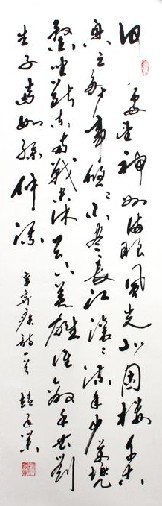 何处望神州满眼风光北固楼千古
兴亡多少事悠悠不尽长江滚滚流年少万兜
鍪坐断东南战未休天下英雄谁敌手曹刘
生子当如孙仲谋 辛弃疾词